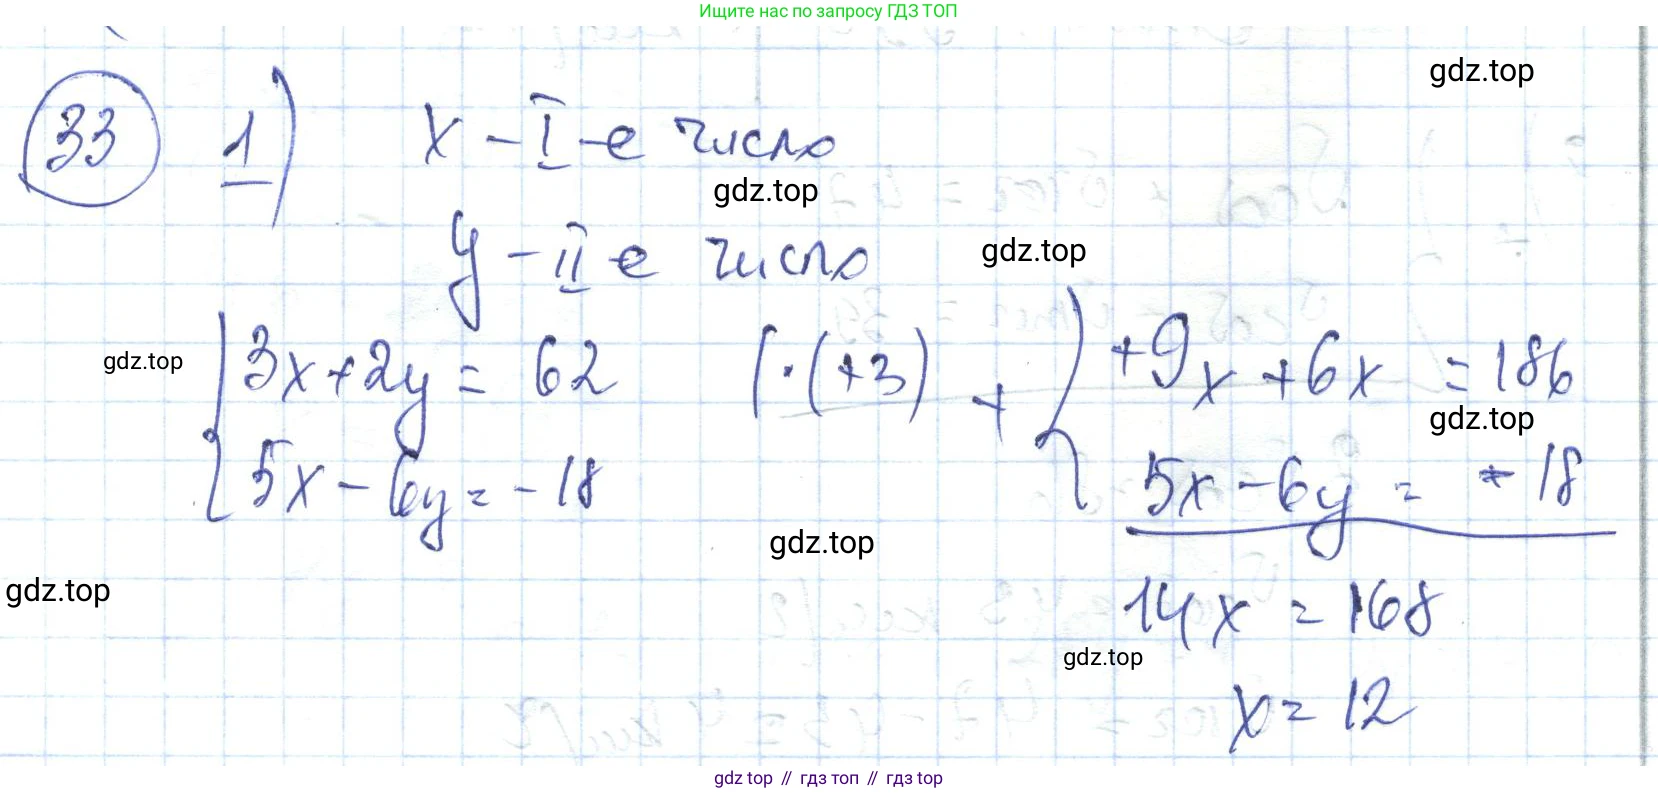 Ищите нас по запросу ГДЗ ТОП
gdz.top
33 1) x - I-е число
gdz.top
y - II-е число
gdz.top
gdz.top
3x+2y = 62 | · (+3) + +9x +6x = 186
gdz.top
5x - 6y = -18 5x - 6y = -18
gdz.top
gdz.top
14x = 168
gdz.top
x = 12
gdz top // гдз топ // gdz top